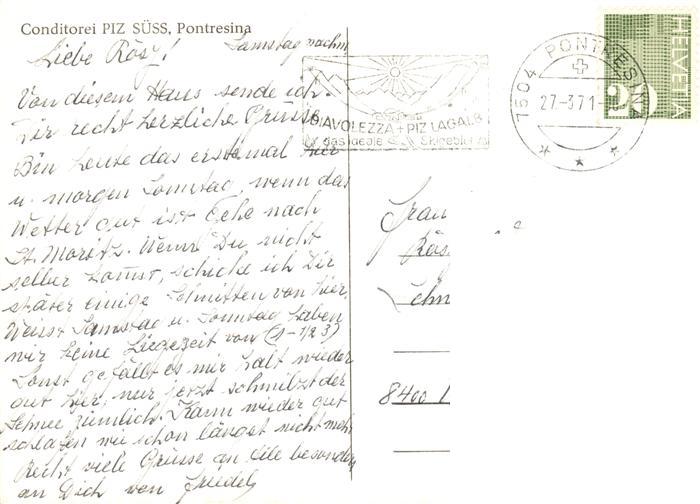 Conditorei PIZ SÜSS, Pontresina
Samstag nachm.
Liebe Rösy!
Von diesem Haus sende ich
Dir recht herzliche Grüsse.
Bin heute das erstemal hier
u. morgen Sonntag, wenn das
Wetter gut ist gehe nach
St. Moritz. Wenn Du nicht
selber kommst, schicke ich Dir
später einige Schnitten von hier.
Weisst Samstag u. Sonntag haben
wir keine Liegezeit von (1-1/2 3)
Sonst gefällt es mir halt wieder
gut hier, nur jetzt schmilzt der
Schnee ziemlich. Kann wieder gut
schlafen wie schon längst nicht mehr
Recht viele Grüsse an alle besonders
an Dich von Friedel
DIAVOLEZZA + PIZ LAGALB
das ideale Skigebiet
7504 PONTRESINA
27-3.71-
HELVETIA
20
Frau
Rös.
Lehn
8400